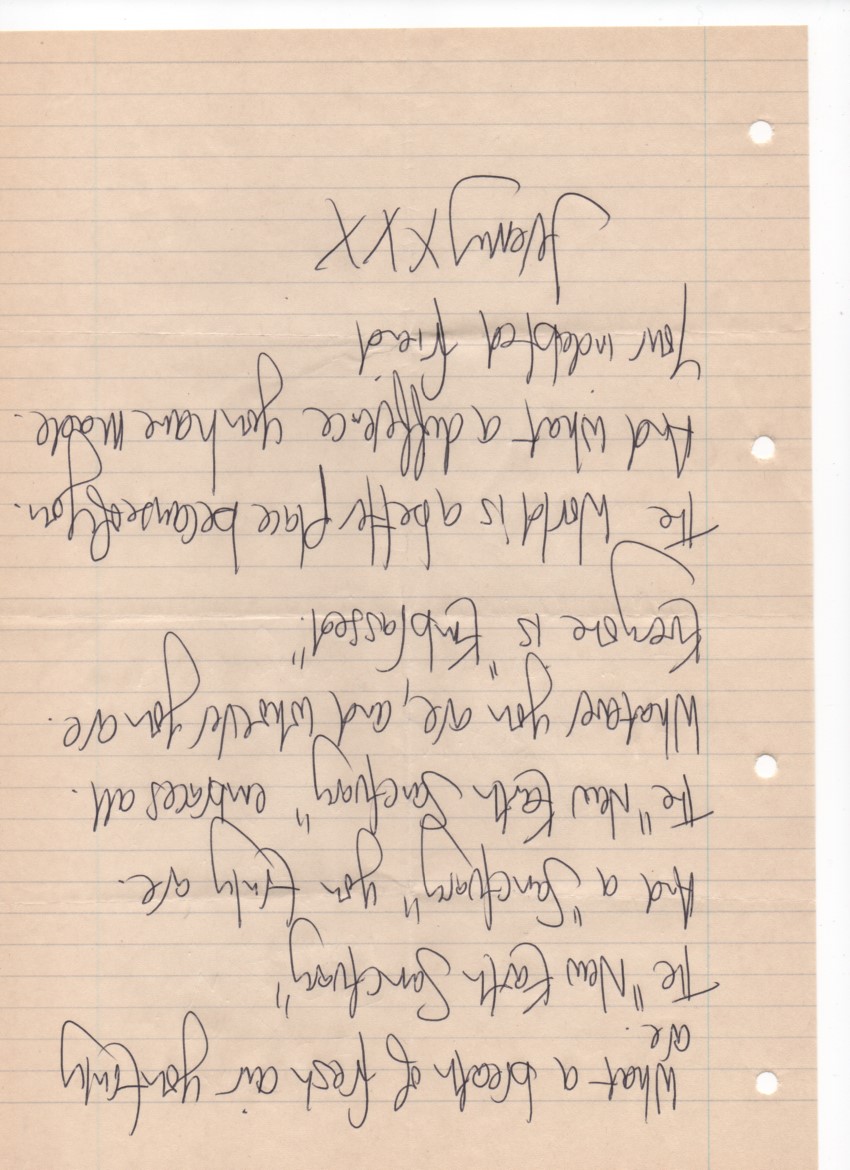 What a breath of fresh air you truly
are.
The "New Earth Sanctuary"
And a "Sanctuary" you truly are.
The "New Earth Sanctuary" embraces all.
Whatever you are, and whoever you are.
Everyone is "Embrassed".
The World is a better place because of you.
And what a difference you have made.
Your indebted friend
Jeremy XXX